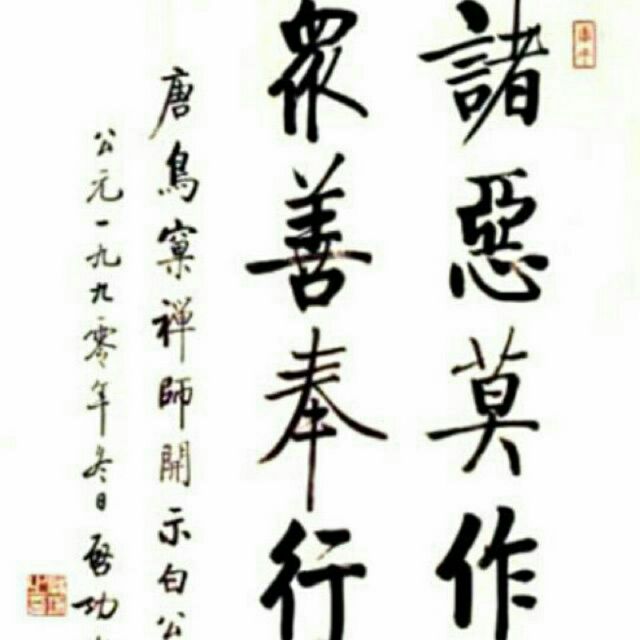 諸惡莫作
眾善奉行
唐鳥窠禅師開示白公
公元一九九零年冬日啓功